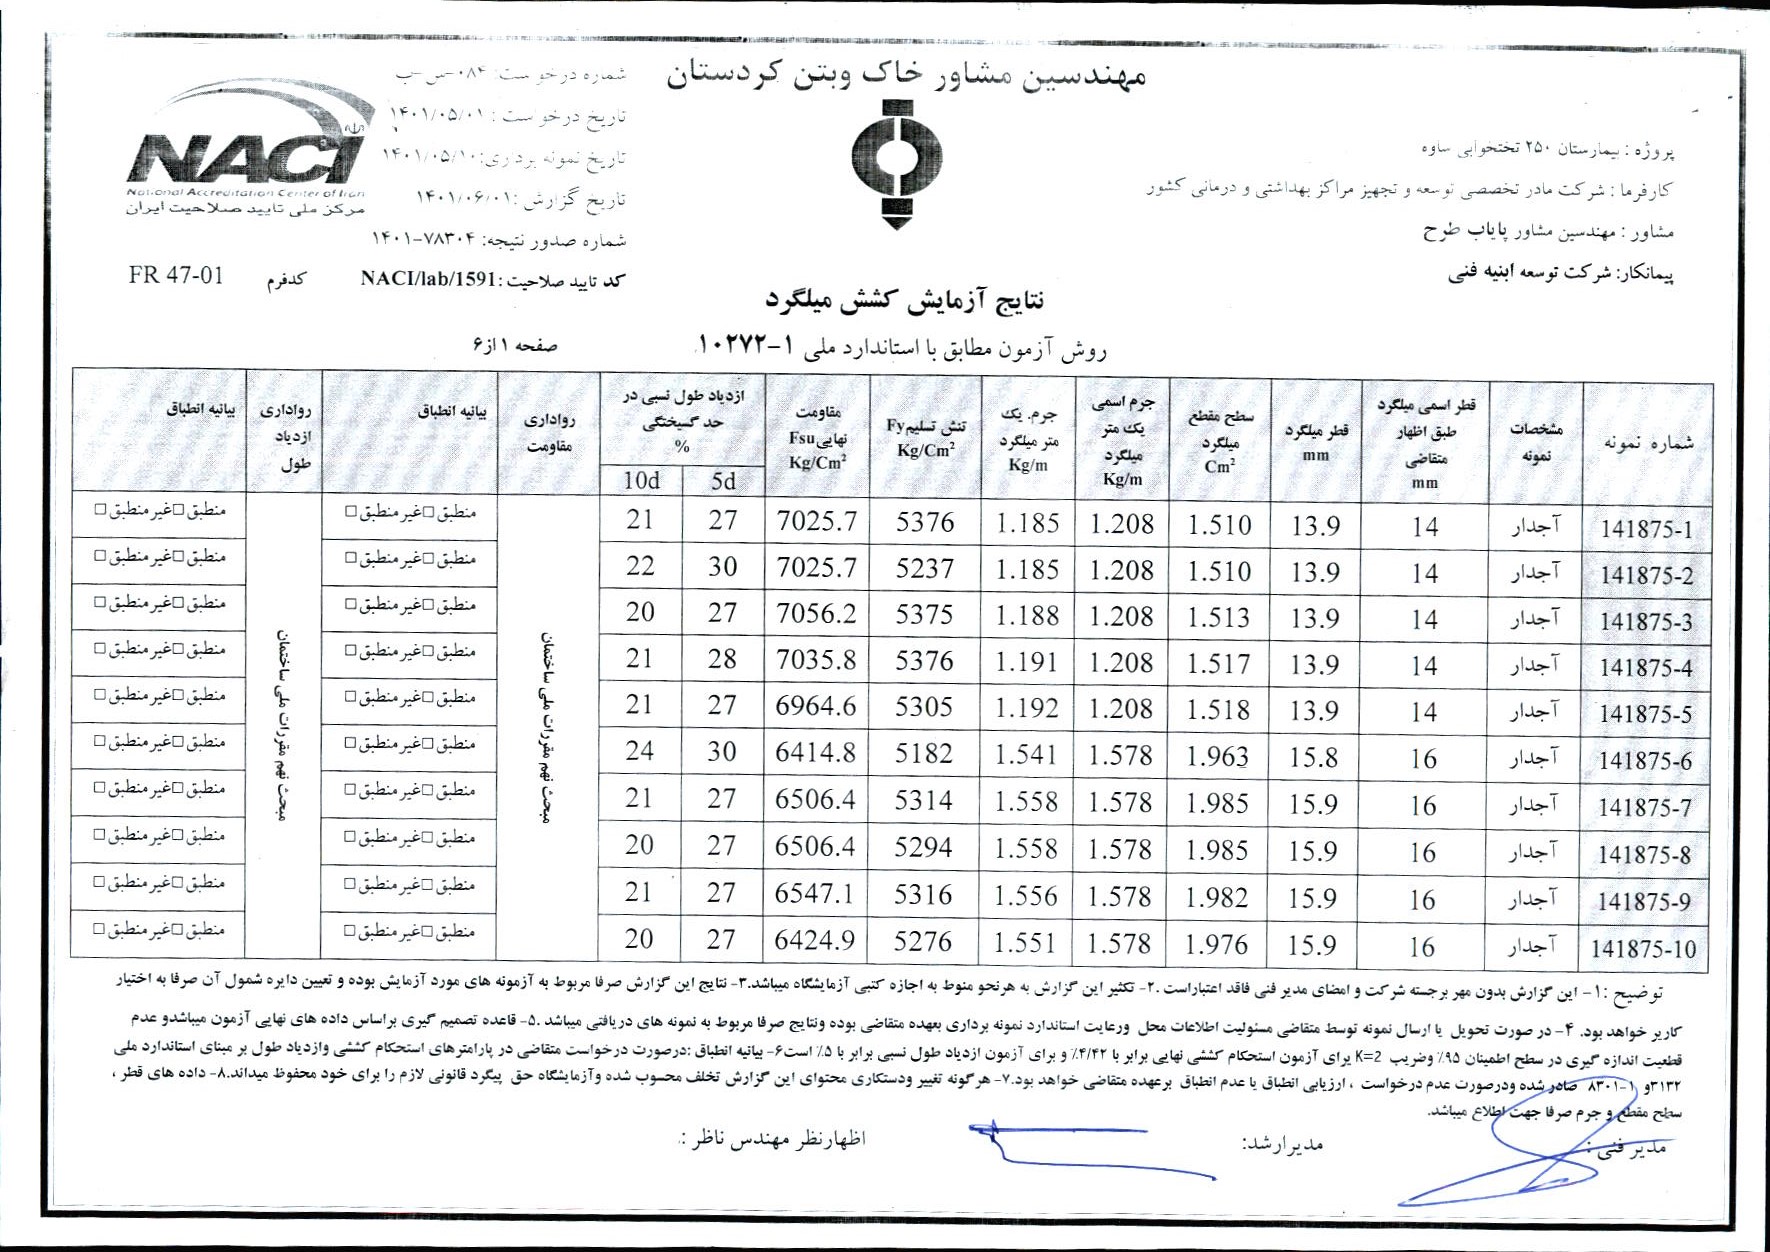 مهندسین مشاور خاک وبتن کردستان
شماره درخواست: ۰۸۴-س-ب
تاریخ درخواست : ۱۴۰۱/۰۵/۰۱
تاریخ نمونه برداری: ۱۴۰۱/۰۵/۱۰
تاریخ گزارش : ۱۴۰۱/۰۶/۰۱
شماره صدور نتیجه: ۷۸۳۰۴-۱۴۰۱
کد تایید صلاحیت :NACI/lab/1591
کدفرم FR 47-01
NACI
National Accreditation Center of Iran
مرکز ملی تایید صلاحیت ایران
پروژه : بیمارستان ۲۵۰ تختخوابی ساوه
کارفرما : شرکت مادر تخصصی توسعه و تجهیز مراکز بهداشتی و درمانی کشور
مشاور : مهندسین مشاور پایاب طرح
پیمانکار: شرکت توسعه ابنیه فنی
نتایج آزمایش کشش میلگرد
روش آزمون مطابق با استاندارد ملی ۱-۱۰۲۷۲
صفحه ۱ از۶
شماره نمونه | مشخصات نمونه | قطر اسمی میلگرد طبق اظهار متقاضی mm | قطر میلگرد mm | سطح مقطع میلگرد Cm² | جرم اسمی یک متر میلگرد Kg/m | جرم. یک متر میلگرد Kg/m | تنش تسلیم Fy Kg/Cm² | مقاومت نهایی Fsu Kg/Cm² | ازدیاد طول نسبی در حد گسیختگی % 5d | 10d | رواداری مقاومت | بیانیه انطباق | رواداری ازدیاد طول | بیانیه انطباق
141875-1 آجدار 14 13.9 1.510 1.208 1.185 5376 7025.7 27 21 منطبق□غیرمنطبق□ منطبق□غیرمنطبق□
141875-2 آجدار 14 13.9 1.510 1.208 1.185 5237 7025.7 30 22 منطبق□غیرمنطبق□ منطبق□غیرمنطبق□
141875-3 آجدار 14 13.9 1.513 1.208 1.188 5375 7056.2 27 20 منطبق□غیرمنطبق□ منطبق□غیرمنطبق□
141875-4 آجدار 14 13.9 1.517 1.208 1.191 5376 7035.8 28 21 منطبق□غیرمنطبق□ منطبق□غیرمنطبق□
141875-5 آجدار 14 13.9 1.518 1.208 1.192 5305 6964.6 27 21 منطبق□غیرمنطبق□ منطبق□غیرمنطبق□
141875-6 آجدار 16 15.8 1.963 1.578 1.541 5182 6414.8 30 24 منطبق□غیرمنطبق□ منطبق□غیرمنطبق□
141875-7 آجدار 16 15.9 1.985 1.578 1.558 5314 6506.4 27 21 منطبق□غیرمنطبق□ منطبق□غیرمنطبق□
141875-8 آجدار 16 15.9 1.985 1.578 1.558 5294 6506.4 27 20 منطبق□غیرمنطبق□ منطبق□غیرمنطبق□
141875-9 آجدار 16 15.9 1.982 1.578 1.556 5316 6547.1 27 21 منطبق□غیرمنطبق□ منطبق□غیرمنطبق□
141875-10 آجدار 16 15.9 1.976 1.578 1.551 5276 6424.9 27 20 منطبق□غیرمنطبق□ منطبق□غیرمنطبق□
مبحث نهم مقررات ملی ساختمان
مبحث نهم مقررات ملی ساختمان
توضیح :۱- این گزارش بدون مهر برجسته شرکت و امضای مدیر فنی فاقد اعتباراست .۲- تکثیر این گزارش به هرنحو منوط به اجازه کتبی آزمایشگاه میباشد.۳- نتایج این گزارش صرفا مربوط به آزمونه های مورد آزمایش بوده و تعیین دایره شمول آن صرفا به اختیار
کاربر خواهد بود. ۴- در صورت تحویل یا ارسال نمونه توسط متقاضی مسئولیت اطلاعات محل ورعایت استاندارد نمونه برداری بعهده متقاضی بوده ونتایج صرفا مربوط به نمونه های دریافتی میباشد .۵- قاعده تصمیم گیری براساس داده های نهایی آزمون میباشدو عدم
قطعیت اندازه گیری در سطح اطمینان ۹۵٪ وضریب K=2 برای آزمون استحکام کششی نهایی برابر با ۴/۴۲٪ و برای آزمون ازدیاد طول نسبی برابر با ۵٪ است۶- بیانیه انطباق :درصورت درخواست متقاضی در پارامترهای استحکام کششی وازدیاد طول بر مبنای استاندارد ملی
۳۱۳۲و ۱-۸۳۰۱ صادر شده ودرصورت عدم درخواست ، ارزیابی انطباق یا عدم انطباق برعهده متقاضی خواهد بود.۷- هرگونه تغییر ودستکاری محتوای این گزارش تخلف محسوب شده وآزمایشگاه حق پیگرد قانونی لازم را برای خود محفوظ میداند.۸- داده های قطر ،
سطح مقطع و جرم صرفا جهت اطلاع میباشد.
مدیر فنی :
مدیرارشد:
اظهارنظر مهندس ناظر :